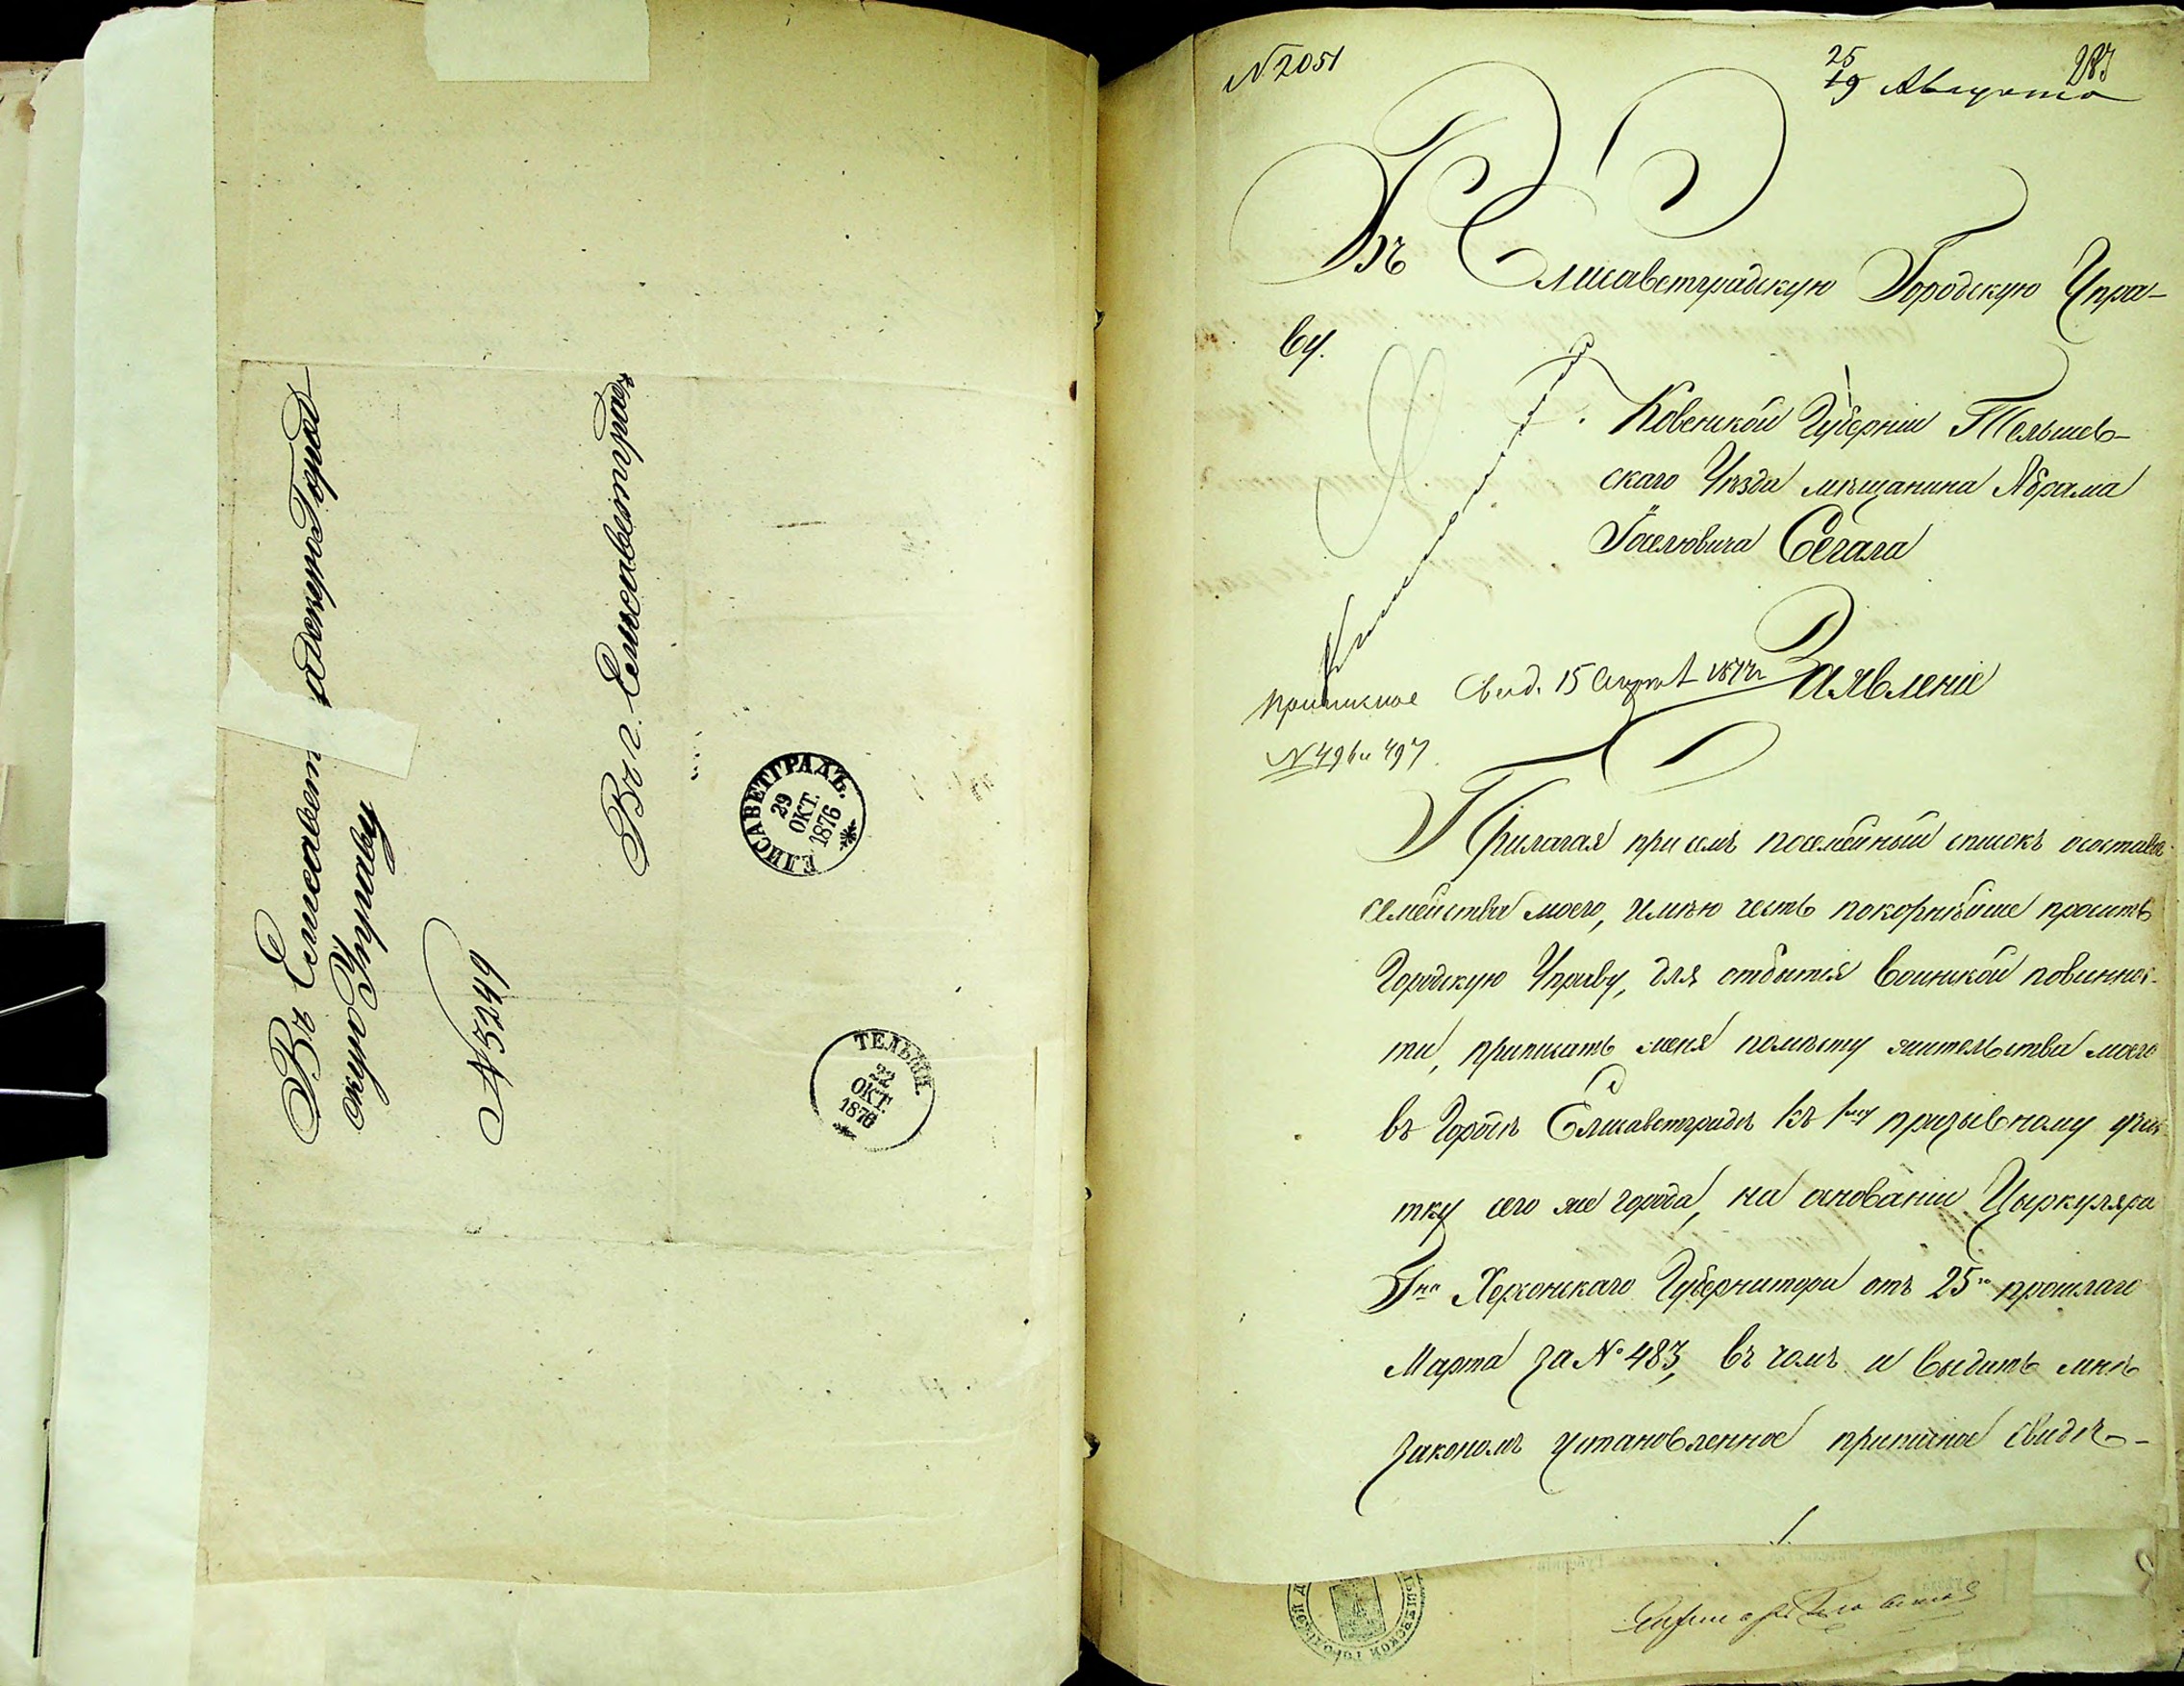 Въ Елисавет адскую Город
скую Управу
№ 5249
Въ г. Елисаветградъ
ЕЛИСАВЕТГРАДЪ.
29
ОКТ.
1876
ТЕЛЬШИ.
22
ОКТ.
1876
№ 2051
25
19 Августа
283
Въ Елисаветградскую Городскую Упра-
ву.
Ковенской Губерніи Тельшев-
скаго Уѣзда мѣщанина Абрама
Іоселовича Сегала
Заявленіе
Приписное Свид. 15 Август 1877 г
№ 496 и 497
Прилагая при семъ посемейный списокъ о составѣ
семейства моего, имѣю честь покорнѣйше просить
Городскую Управу, для отбытія воинской повиннос-
ти, приписать меня по мѣсту жительства моего
въ Городѣ Елисаветградѣ къ 1му призывному учас-
тку сего же города, на основаніи Цыркуляра
Гна Херсонскаго Губернатора отъ 25го прошлаго
Марта за № 483, въ чемъ и выдать мнѣ
закономъ установленное приписное свидѣ-